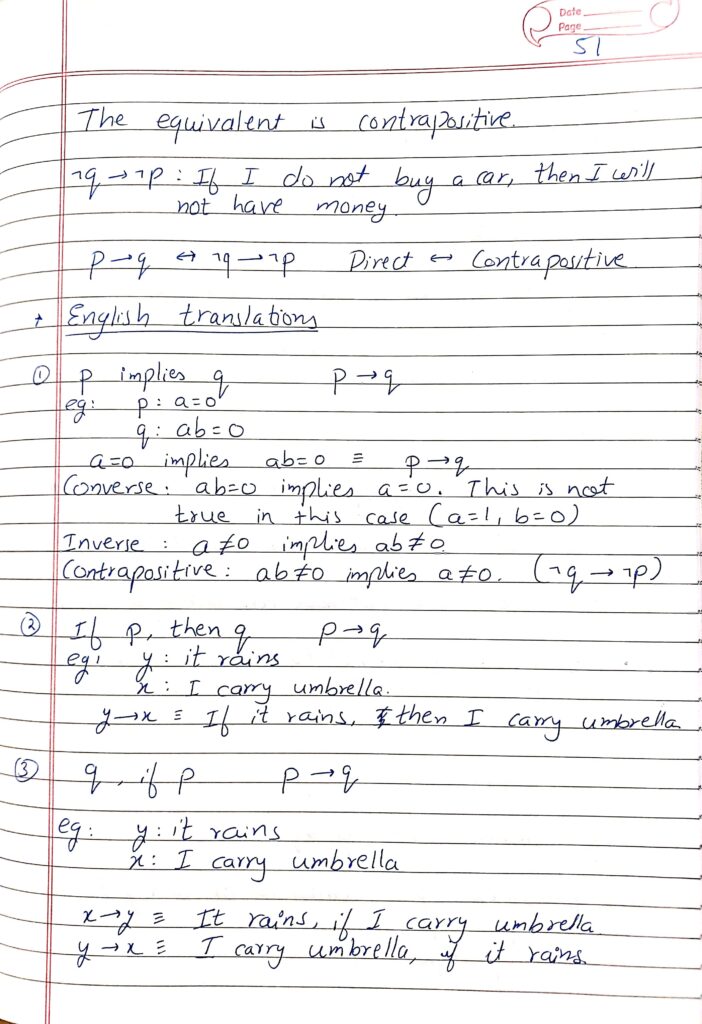 Date
Page
51
The equivalent is contrapositive.
¬q → ¬p : If I do not buy a car, then I will
not have money.
p → q ↔ ¬q → ¬p Direct ↔ Contrapositive
English translations
① p implies q p → q
eg: p : a=0
q : ab=0
a=0 implies ab=0 ≡ p → q
Converse : ab=0 implies a=0. This is not
true in this case (a=1, b=0)
Inverse : a≠0 implies ab≠0
Contrapositive : ab≠0 implies a≠0. (¬q → ¬p)
② If p, then q p → q
eg: y : it rains
x : I carry umbrella.
y → x ≡ If it rains, then I carry umbrella
③ q, if p p → q
eg: y : it rains
x : I carry umbrella
x → y ≡ It rains, if I carry umbrella
y → x ≡ I carry umbrella, if it rains.